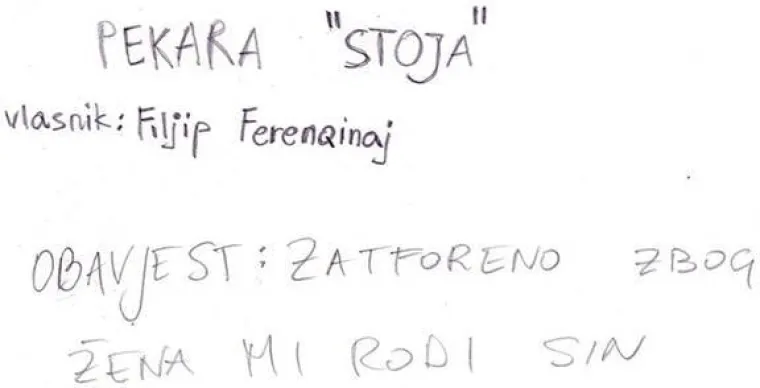 PEKARA "STOJA"
vlasnik: Filjip Ferenqinaj
OBAVJEST: ZATFORENO ZBOG
ŽENA MI RODI SIN